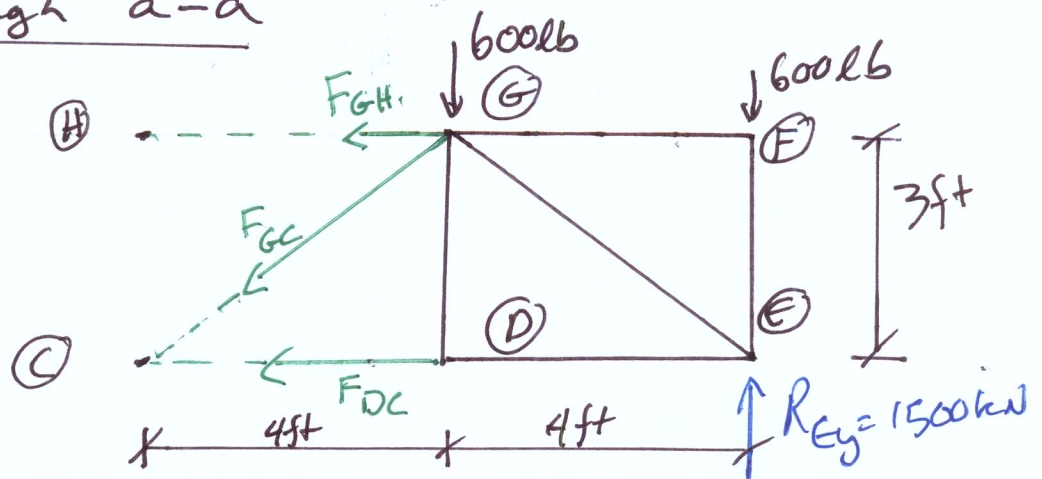 gh a-a
600lb
600lb
G
F_GH.
H
F
3ft
F_GC
D
E
C
F_DC
4ft
4ft
R_Ey=1500kN